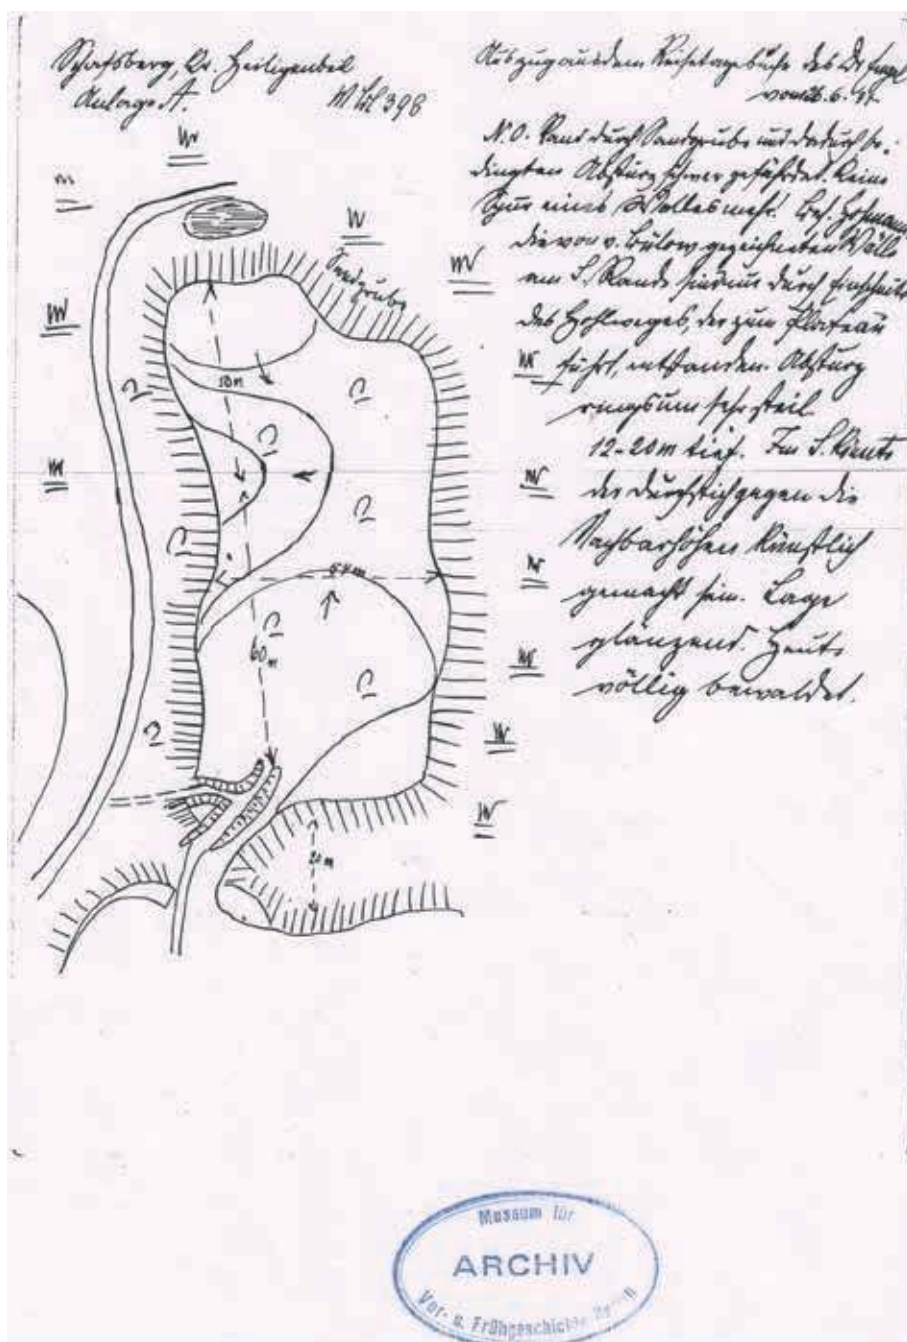 Schafsberg, Kr. Heiligenbeil
Anlage A.
M Bl 398
Auszug aus dem Reisetagebuche des Dr Engel
vom 6.
N.O. Rand durch Sandgrube und dadurch be-
dingten Absturz schwer gefährdet. Keine
Spur eines Walles mehr.
die von v. Bülow gezeichneten Wälle
am S. Rande sind nur durch Einschnitt
des Hohlweges, der zum Plateau
führt, entstanden. Absturz
ringsum sehr steil
12-20m tief. Im S. könnte
der Durchstich gegen die
Nachbarhöhen künstlich
gemacht sein. Lage
glänzend. Heute
völlig bewaldet.
Sandgrube
60m
Museum für
ARCHIV
Vor- u. Frühgeschichte Berlin